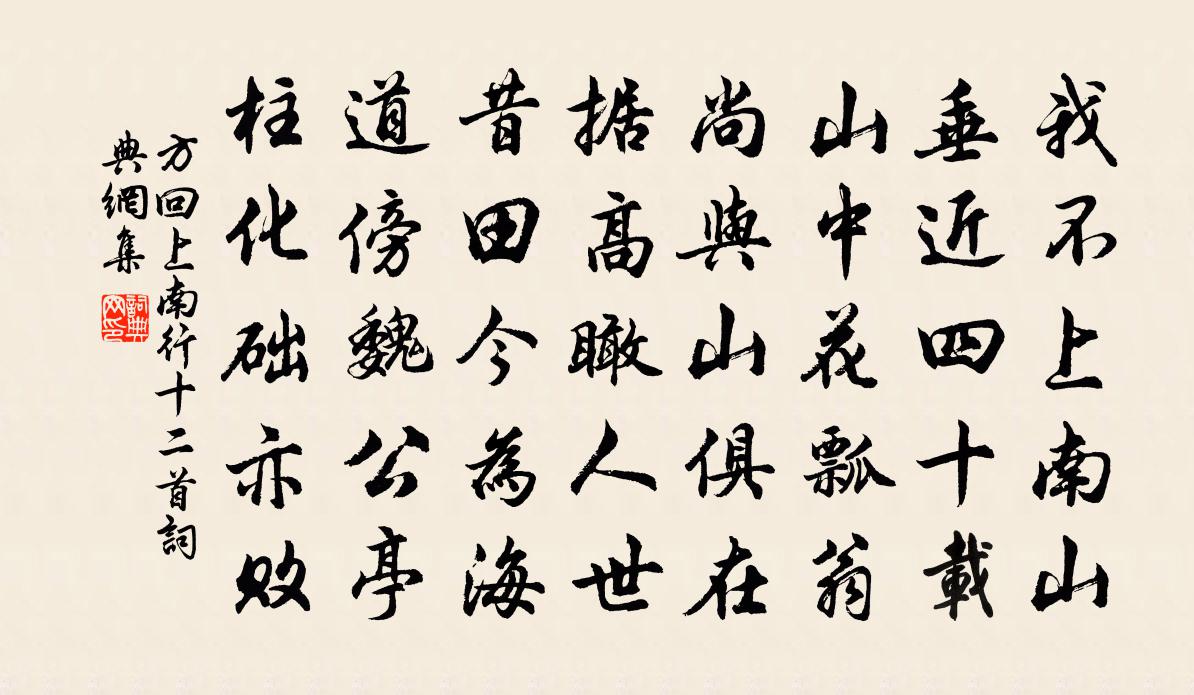 我不上南山
垂近四十載
山中花瓢翁
尚與山俱在
据高瞰人世
昔田今為海
道傍魏公亭
柱化础亦败
方回上南行十二首詞
典網集
詞典
网印